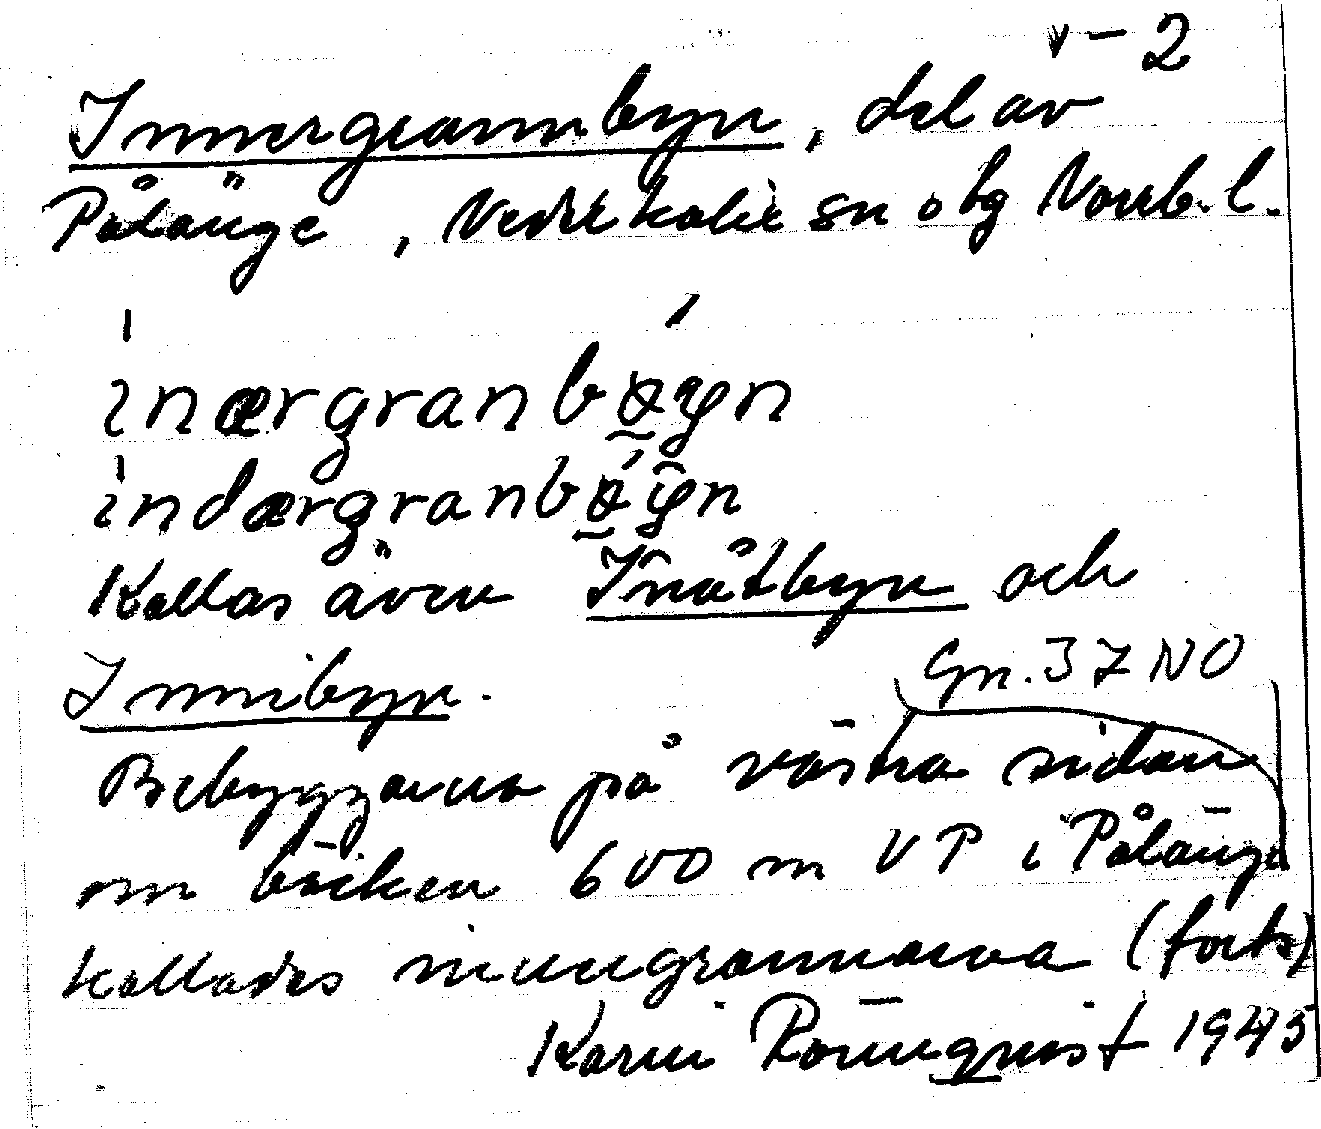 v-2
Innergrannbyn, del av
Pålänge, Nederkalix sn o tg Norrb. l.
inærgranbøyn
indærgranbøyn
Kallas även Inåtbyn och
Innibyn.
Gn. 37 NO
Bebyggarna på västra sidan
om bäcken 600 m VP i Pålänge
kallades inugrannarna (forts)
Karin Rönnqvist 1945